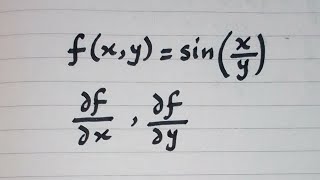 f(x,y) = sin(x/y)
∂f/∂x , ∂f/∂y